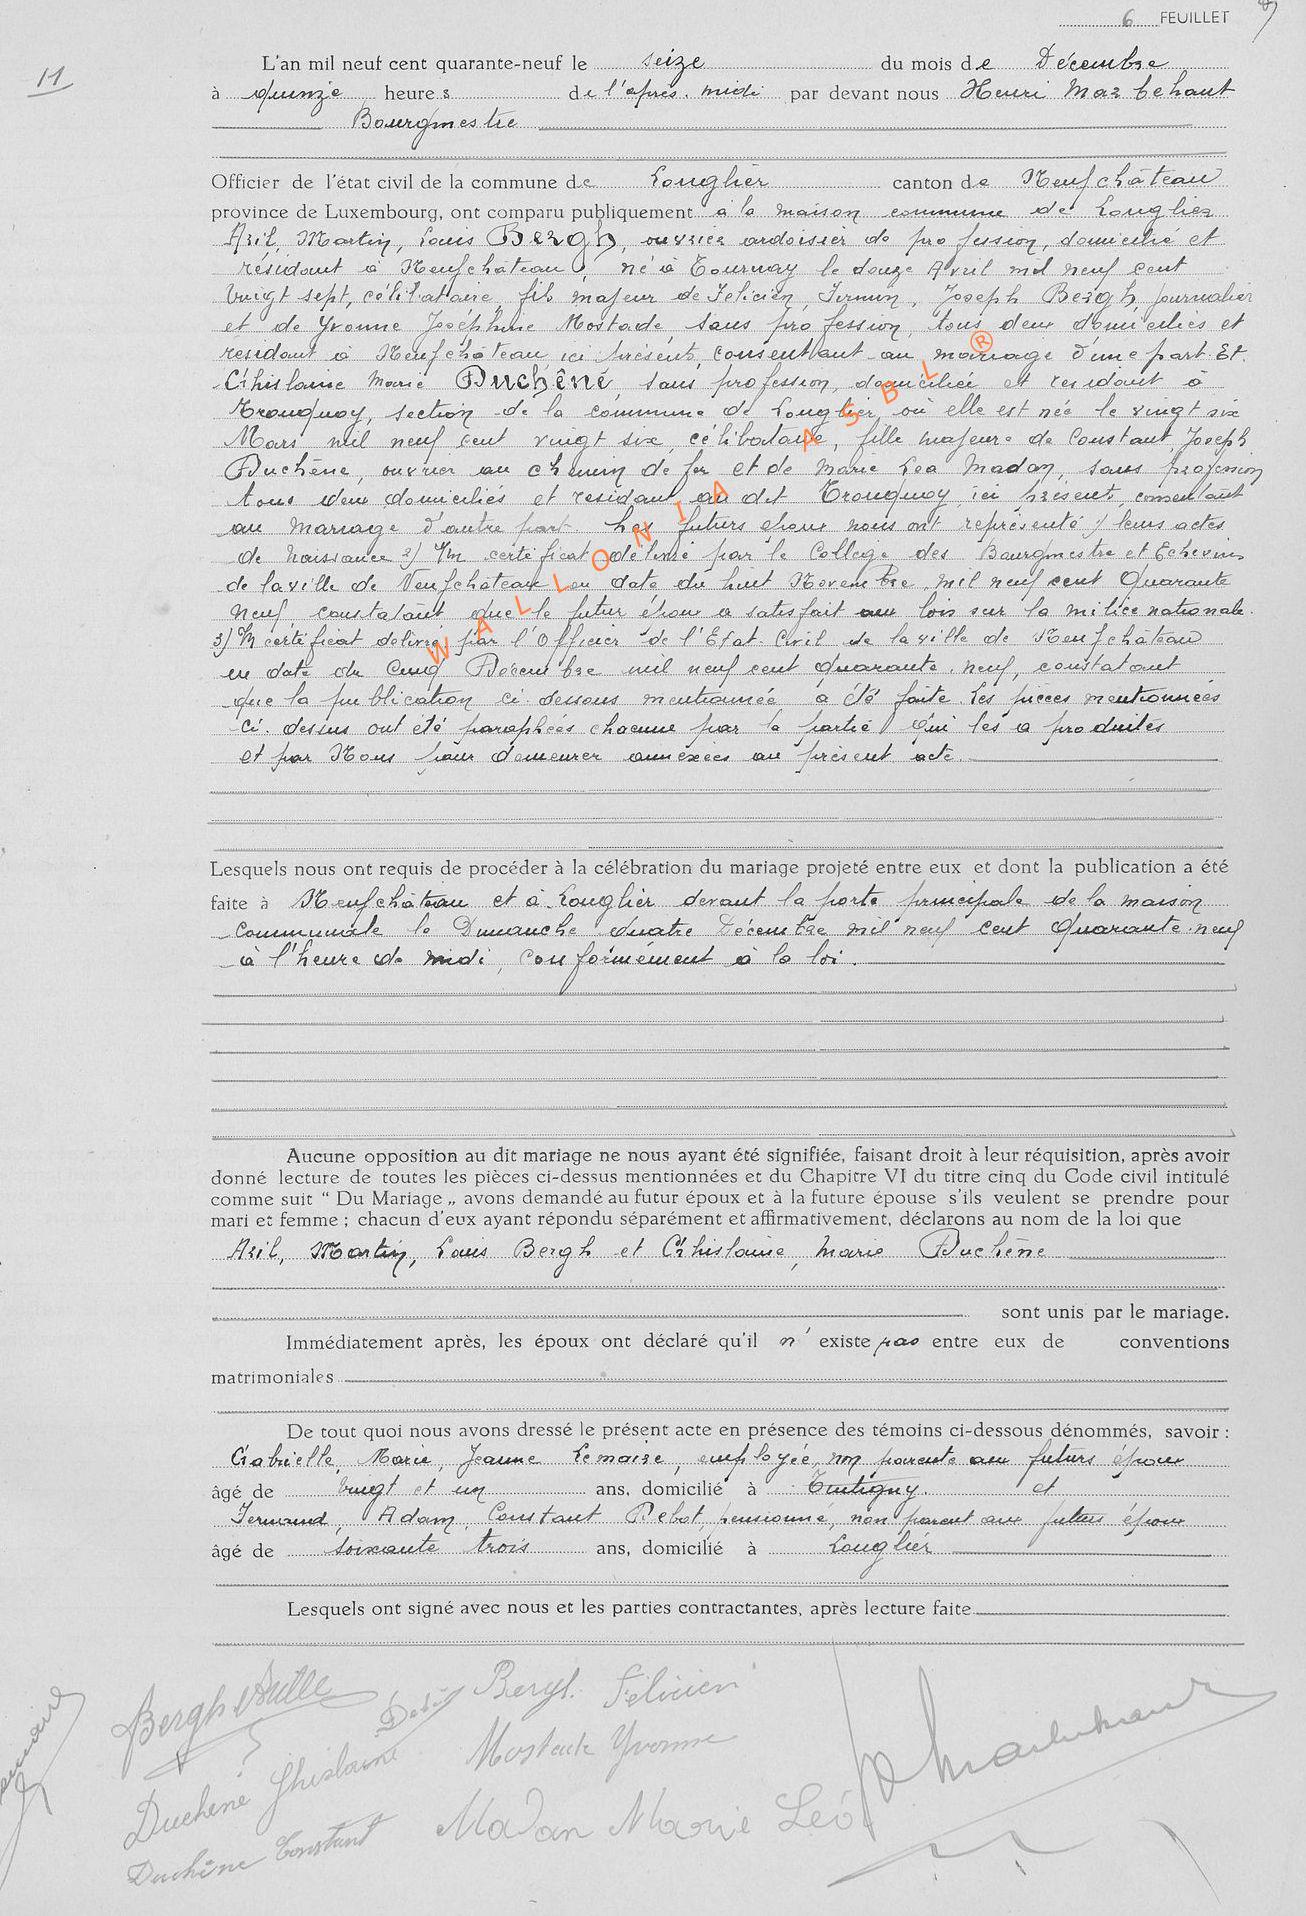 6 FEUILLET
11
L'an mil neuf cent quarante-neuf le seize du mois de Décembre
à quinze heures de l'après-midi par devant nous Henri Maz behaut
Bourgmestre
Officier de l'état civil de la commune de Longlier canton de Neufchâteau
province de Luxembourg, ont comparu publiquement à la maison commune de Longlier
Axil, Martin, Louis Bergh, ouvrier ardoisier de profession, domicilié et
résidant à Neufchâteau, né à Tournay le douze Avril mil neuf cent
vingt sept, célibataire, fils majeur de Félicien, Firmin, Joseph Bergh journalier
et de Yvonne Joséphine Mostade sans profession, tous deux domiciliés et
résidant à Neufchâteau ici présents, consentant au mariage d'une part. Et.
Ghislaine Marie Duchêne, sans profession, domiciliée et résidant à
Tronquoy, section de la commune de Longlier où elle est née le vingt six
Mars mil neuf cent vingt six, célibataire, fille majeure de Constant, Joseph
Duchêne, ouvrier au chemin de fer et de Marie Lea Madan, sans profession
tous deux domiciliés et résidant au dit Tronquoy, ici présents, consentant
au mariage d'autre part. Les futurs époux nous ont représenté 1) leurs actes
de Naissance 2) Un certificat délivré par le Collège des Bourgmestre et Echevins
de la ville de Neufchâteau en date du huit Novembre mil neuf cent Quarante
Neuf, constatant que le futur époux a satisfait aux lois sur la milice nationale.
3) Un certificat délivré par l'Officier de l'Etat-Civil de la ville de Neufchâteau
en date du Cinq Décembre mil neuf cent quarante-neuf, constatant
que la publication ci-dessous mentionnée a été faite. Les pièces mentionnées
ci-dessus ont été paraphées chacune par la partie qui les a produites
et par Nous pour demeurer annexées au présent acte.
WALLONIA ASBL ®
Lesquels nous ont requis de procéder à la célébration du mariage projeté entre eux et dont la publication a été
faite à Neufchâteau et à Longlier devant la porte principale de la maison
Communale le Dimanche quatre Décembre mil neuf cent Quarante-neuf
à l'heure de midi, conformément à la loi.
Aucune opposition au dit mariage ne nous ayant été signifiée, faisant droit à leur réquisition, après avoir
donné lecture de toutes les pièces ci-dessus mentionnées et du Chapitre VI du titre cinq du Code civil intitulé
comme suit “ Du Mariage „ avons demandé au futur époux et à la future épouse s'ils veulent se prendre pour
mari et femme ; chacun d'eux ayant répondu séparément et affirmativement, déclarons au nom de la loi que
Axil, Martin, Louis Bergh et Ghislaine, Marie Duchêne
sont unis par le mariage.
Immédiatement après, les époux ont déclaré qu'il n'existe pas entre eux de conventions
matrimoniales
De tout quoi nous avons dressé le présent acte en présence des témoins ci-dessous dénommés, savoir :
Gabrielle, Marie, Jeanne Lemaire, employée, non parente aux futurs époux
âgé de vingt et un ans, domicilié à Tintigny. et
Fernand, Adam, Constant Rebot, pensionné, non parent aux futurs époux
âgé de soixante trois ans, domicilié à Longlier
Lesquels ont signé avec nous et les parties contractantes, après lecture faite
Bergh Félicien
Mostade Yvonne
Duchêne Ghislaine
Madan Marie Léa
Duchêne Constant